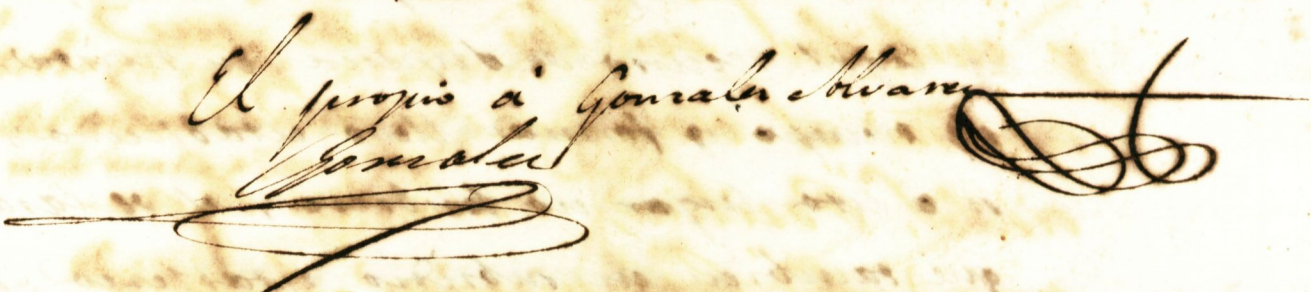 El propio á Gonzalez Alvarez
Gonzalez